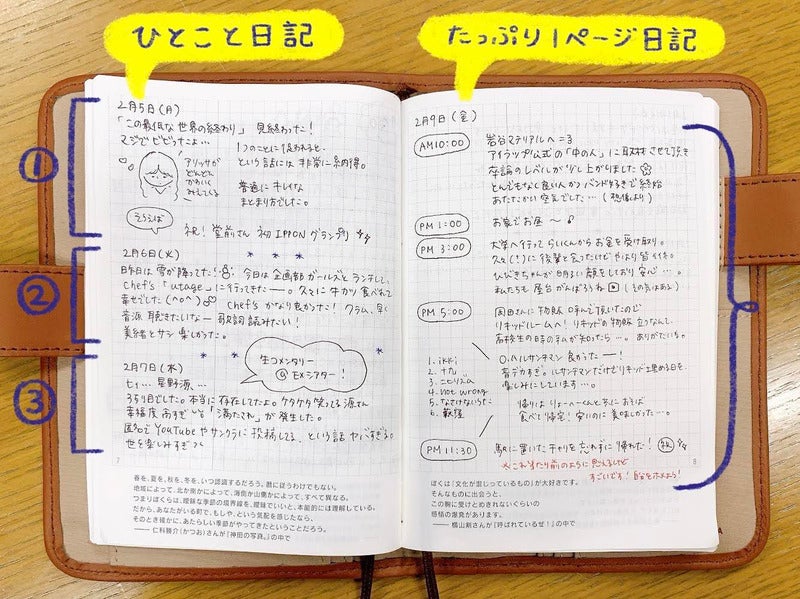 ひとこと日記
たっぷり1ページ日記
①
②
③
2月5日(月)
「この最低な世界の終わり」 見終わった!
マジでビビったよ…
1つのことに促われると、
という話には非常に納得。
普通にキレイな
まとまり方でした。
アリッサが
どんどん
かわいく
みえてくる
そういえば
祝! 堂前さん 初 IPPON グランプリ
2月6日(火)
昨日は雪が降ってた! 今日は企画部ガールズとランチして、
Chef's 「utage」に行ってきたー。久々に牛カツ食べれて
幸せでした(^o^) Chef's かなり良かった! クラム、早く
音源聴きたいなー 歌詞読みたい!
美緒とサシ 楽しかった。
2月7日(水)
生コメンタリー
@ EXシアター!
七ィ… 星野源…
3うり目でした。本当に存在してたよ。ケタケタ笑ってる源さん
幸福度高すぎ 「満たされ」が発生した。
匿名で YouTube やサンクラに投稿してる、という話 ヤバすぎる。
世を楽しみすぎ
7
春を、夏を、秋を、冬を、いつ認識するだろう。暦に従うわけでもない。
地域によって、北か南かによって、海側か山側かによって、すべて異なる。
つまりぼくらは、曖昧な季節の境界線を、曖昧でいいと、本能的には理解している。
だから、あなたがいる町で、もしや、という気配を感じたなら、
そのとき確かに、あたらしい季節がやってきたということだろう。
―― 仁科勝介(かつお)さんが『神田の写真。』の中で
2月9日(金)
AM10:00
岩谷マテリアルへ =3
アイラップ公式の「中の人」に取材させて頂き
卒論のレベルが少し上がりました
とんでもなく良い人かつバンド好きで終始
あたたかい空気でした…(恐縮より)
PM 1:00
お家でお昼〜
PM 3:00
大学へ行って らいくんからお金を受け取り。
久々(!)に後輩と会ったけどやはり皆イイキ。
ひびきちゃんが明るい顔をしており安心…。
私たちも屋台がんばろうね (その気はある)
PM 5:00
岡田さんに物販ひ手んで頂いたので
リキッドルームへ! リキッドの物販立つなんて、
高校生の時の早が知ったら…。ありがたいよ。
1. ikki
2. ナカ
3. ニヒリズム
4. not wrong
5. なさけないうた
6. 歓怪
0. ハルシネマン 良かったー!
音デカすぎ。ルサンチマンだけどリキッド埋める日を、
楽しみにしています…。
帰りは りょーへーくんと共におそば
食べて帰宅! 安いのに美味しかった…。
PM 11:30
駅に置いたチャリを忘れずに帰れた! 祝
※これ当たり前のように思えるけど
すごいです! 自分をホメよう!
8
ぼくは「文化が混じっているもの」が大好きです。
そんなものに出会うと、
この腕に受けとめきれないぐらいの
感情の爆発があります。
―― 横山剣さんが『呼ばれているぜ!』の中で